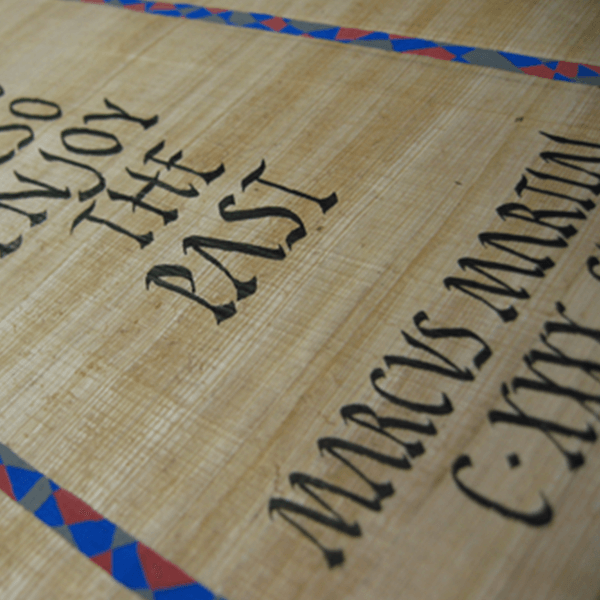 SO
NJOY
THE
PAST
MARCVS MARTIAL
C·XXXX